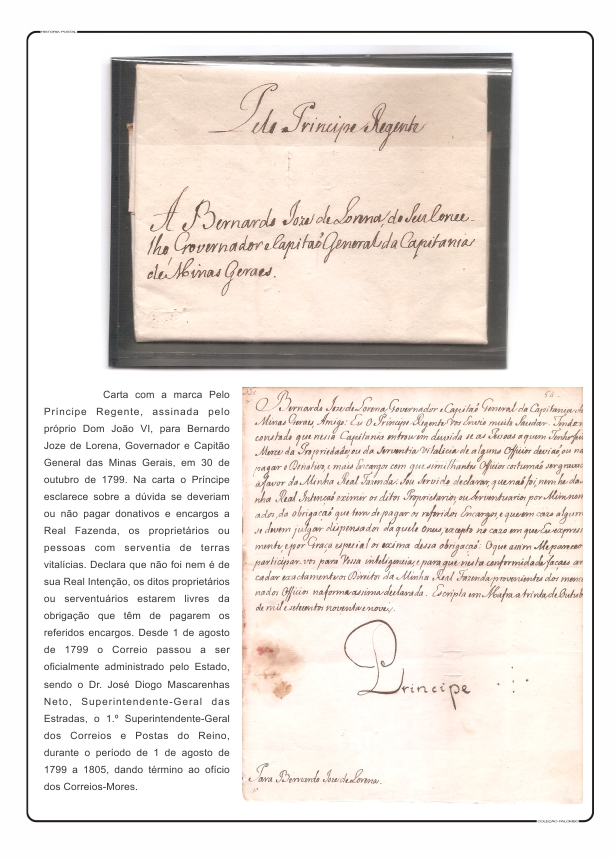 HISTÓRIA POSTAL
Pelo Principe Regente
A Bernardo Joze de Lorena, do Seu Conce-
lho Governador e Capitaõ General da Capitania
de Minas Geraes.
Carta com a marca Pelo
Príncipe Regente, assinada pelo
próprio Dom João VI, para Bernardo
Joze de Lorena, Governador e Capitão
General das Minas Gerais, em 30 de
outubro de 1799. Na carta o Príncipe
esclarece sobre a dúvida se deveriam
ou não pagar donativos e encargos a
Real Fazenda, os proprietários ou
pessoas com serventia de terras
vitalícias. Declara que não foi nem é de
sua Real Intenção, os ditos proprietários
ou serventuários estarem livres da
obrigação que têm de pagarem os
referidos encargos. Desde 1 de agosto
de 1799 o Correio passou a ser
oficialmente administrado pelo Estado,
sendo o Dr. José Diogo Mascarenhas
Neto, Superintendente-Geral das
Estradas, o 1.º Superintendente-Geral
dos Correios e Postas do Reino,
durante o período de 1 de agosto de
1799 a 1805, dando término ao ofício
dos Correios-Mores.
Bernardo Joze de Lorena Governador e Capitaõ General da Capitania de
Minas Geraes, Amigo: Eu O Principe Regente vos Envio muito Saudar. Tendo
constado que nessa Capitania entrou em duvida se as Pessoas a quem Tenho feito
Merce da Propriedade, ou da Serventia Vitalicia de alguns Officios deviaõ, ou naõ
pagar o Donativo, e mais Encargos com que similhantes Officios costumaõ ser gravados
a favor da Minha Real Fazenda: Sou Servido declarar, que naõ foi, nem he da
Minha Real Intençaõ eximir os ditos Proprietarios, ou Serventuarios, por Mim nome-
ados, da obrigaçaõ que tem de pagar os referidos Encargos, e que em cazo algum
se devem julgar dispensados daquele onus, excepto no cazo em que Eu expressa-
mente, e por Graça especial os exima dessa obrigaçaõ. O que assim Me pareceo
participar-vos para Vossa inteligencia, e para que nesta conformidade façaes arre-
cadar exactamente os Direitos da Minha Real Fazenda provenientes dos mencio-
nados Officios na forma assima declarada. Escripta em Mafra a trinta de Outubro
de mil e setecentos noventa e nove.
Principe
Para Bernardo Joze de Lorena.
COLEÇÃO PALOMBO